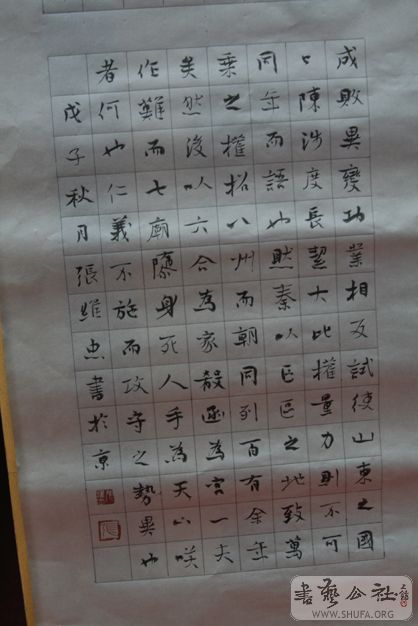 成敗異變功業相反試使山東之國
陳涉度長絜大比權量力則不可
同年而語也然秦以區區之地致萬
乘之權招八州而朝同列百有余年
矣然後以六合為家殽函為宮一夫
作難而七廟隳身死人手為天下咲
者何也仁義不施而攻守之勢異也
戊子秋月張維忠書於京
書藝公社
WWW.SHUFA.ORG